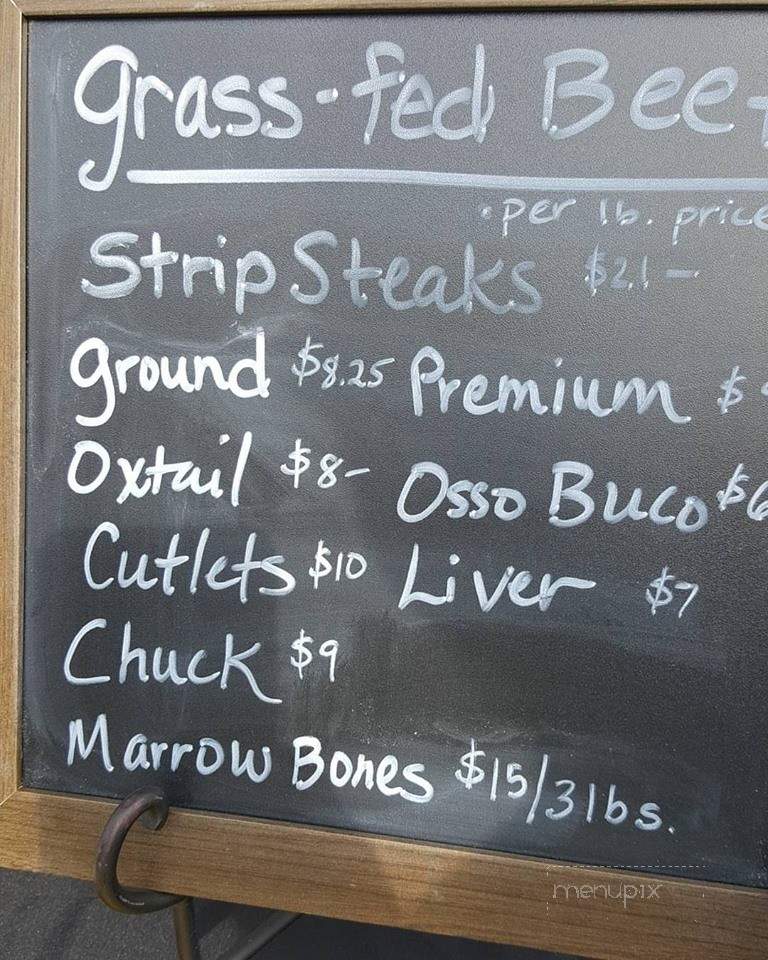 grass-fed Bee
• per lb. price
Strip Steaks $21-
ground $8.25 Premium $
Oxtail $8- Osso Buco $6
Cutlets $10 Liver $7
Chuck $9
Marrow Bones $15/3lbs.
menupix